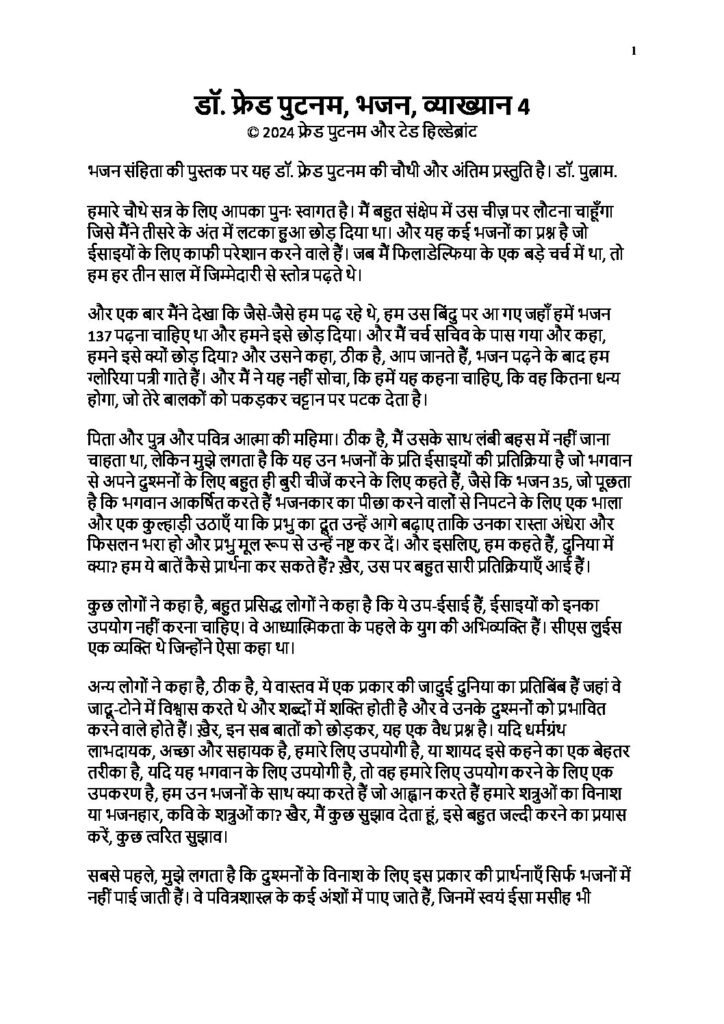 1
डॉ. फ्रेड पुटनम, भजन, व्याख्यान 4
© 2024 फ्रेड पुटनम और टेड हिल्डेब्रांट
भजन संहिता की पुस्तक पर यह डॉ. फ्रेड पुटनम की चौथी और अंतिम प्रस्तुति है। डॉ. पुत्नाम.
हमारे चौथे सत्र के लिए आपका पुनः स्वागत है। मैं बहुत संक्षेप में उस चीज़ पर लौटना चाहूँगा
जिसे मैंने तीसरे के अंत में लटका हुआ छोड़ दिया था। और यह कई भजनों का प्रश्न है जो
ईसाइयों के लिए काफी परेशान करने वाले हैं। जब मैं फिलाडेल्फिया के एक बड़े चर्च में था, तो
हम हर तीन साल में जिम्मेदारी से स्तोत्र पढ़ते थे।
और एक बार मैंने देखा कि जैसे-जैसे हम पढ़ रहे थे, हम उस बिंदु पर आ गए जहाँ हमें भजन
137 पढ़ना चाहिए था और हमने इसे छोड़ दिया। और मैं चर्च सचिव के पास गया और कहा,
हमने इसे क्यों छोड़ दिया? और उसने कहा, ठीक है, आप जानते हैं, भजन पढ़ने के बाद हम
ग्लोरिया पत्री गाते हैं। और मैं ने यह नहीं सोचा, कि हमें यह कहना चाहिए, कि वह कितना धन्य
होगा, जो तेरे बालकों को पकड़कर चट्टान पर पटक देता है।
पिता और पुत्र और पवित्र आत्मा की महिमा। ठीक है, मैं उसके साथ लंबी बहस में नहीं जाना
चाहता था, लेकिन मुझे लगता है कि यह उन भजनों के प्रति ईसाइयों की प्रतिक्रिया है जो भगवान
से अपने दुश्मनों के लिए बहुत ही बुरी चीजें करने के लिए कहते हैं, जैसे कि भजन 35, जो पूछता
है कि भगवान आकर्षित करते हैं भजनकार का पीछा करने वालों से निपटने के लिए एक भाला
और एक कुल्हाड़ी उठाएँ या कि प्रभु का दूत उन्हें आगे बढ़ाए ताकि उनका रास्ता अंधेरा और
फिसलन भरा हो और प्रभु मूल रूप से उन्हें नष्ट कर दें। और इसलिए, हम कहते हैं, दुनिया में
क्या? हम ये बातें कैसे प्रार्थना कर सकते हैं? ख़ैर, उस पर बहुत सारी प्रतिक्रियाएँ आई हैं।
कुछ लोगों ने कहा है, बहुत प्रसिद्ध लोगों ने कहा है कि ये उप-ईसाई हैं, ईसाइयों को इनका
उपयोग नहीं करना चाहिए। वे आध्यात्मिकता के पहले के युग की अभिव्यक्ति हैं। सीएस लुईस
एक व्यक्ति थे जिन्होंने ऐसा कहा था।
अन्य लोगों ने कहा है, ठीक है, ये वास्तव में एक प्रकार की जादुई दुनिया का प्रतिबिंब हैं जहां वे
जादू-टोने में विश्वास करते थे और शब्दों में शक्ति होती है और वे उनके दुश्मनों को प्रभावित
करने वाले होते हैं। ख़ैर, इन सब बातों को छोड़कर, यह एक वैध प्रश्न है। यदि धर्मग्रंथ
लाभदायक, अच्छा और सहायक है, हमारे लिए उपयोगी है, या शायद इसे कहने का एक बेहतर
तरीका है, यदि यह भगवान के लिए उपयोगी है, तो वह हमारे लिए उपयोग करने के लिए एक
उपकरण है, हम उन भजनों के साथ क्या करते हैं जो आह्वान करते हैं हमारे शत्रुओं का विनाश
या भजनहार, कवि के शत्रुओं का? खैर, मैं कुछ सुझाव देता हूं, इसे बहुत जल्दी करने का प्रयास
करें, कुछ त्वरित सुझाव।
सबसे पहले, मुझे लगता है कि दुश्मनों के विनाश के लिए इस प्रकार की प्रार्थनाएँ सिर्फ भजनों में
नहीं पाई जाती हैं। वे पवित्रशास्त्र के कई अंशों में पाए जाते हैं, जिनमें स्वयं ईसा मसीह भी